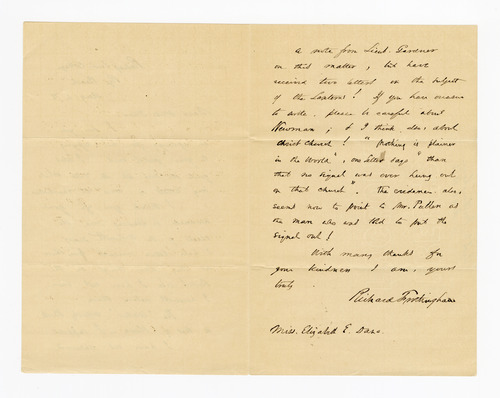 a note from Lieut. Gardner
on this matter, but have
received two letters on the subject
of the Lanterns! If you have occasion
to write, please be careful about
Newman; & I think, also, about
Christ Church! "Nothing is plainer
in the World", one letter says "than
that no signal was ever hung out
on that church". The evidence, also,
seems now to point to Mr. Pulling as
the man who was told to put the
signal out!
With many thanks for
your kindness I am, yours
truly
Richard Frothingham
Miss. Elizabeth E. Dana.